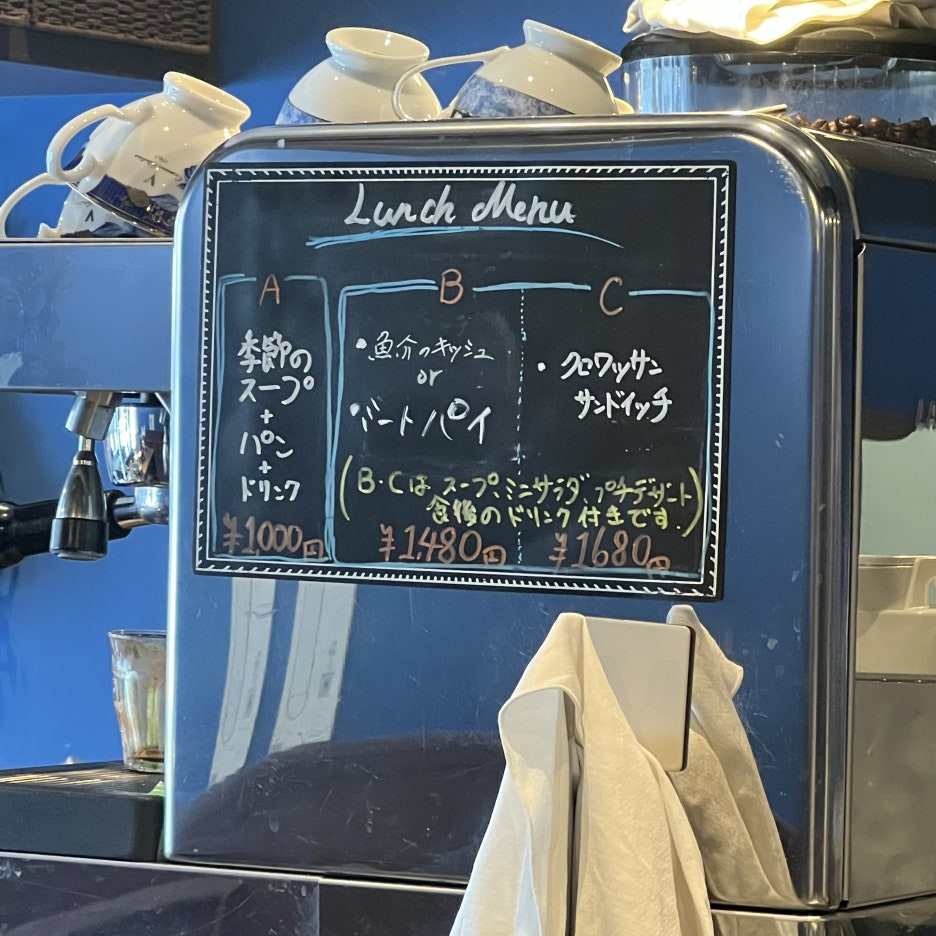 Lunch Menu
A
季節の
スープ
+
パン
+
ドリンク
¥1,000円
B
・魚介のキッシュ
or
・ミートパイ
¥1,480円
C
・クロワッサン
サンドイッチ
(B・Cは スープ、ミニサラダ、プチデザート
食後のドリンク付きです.)
¥1680円